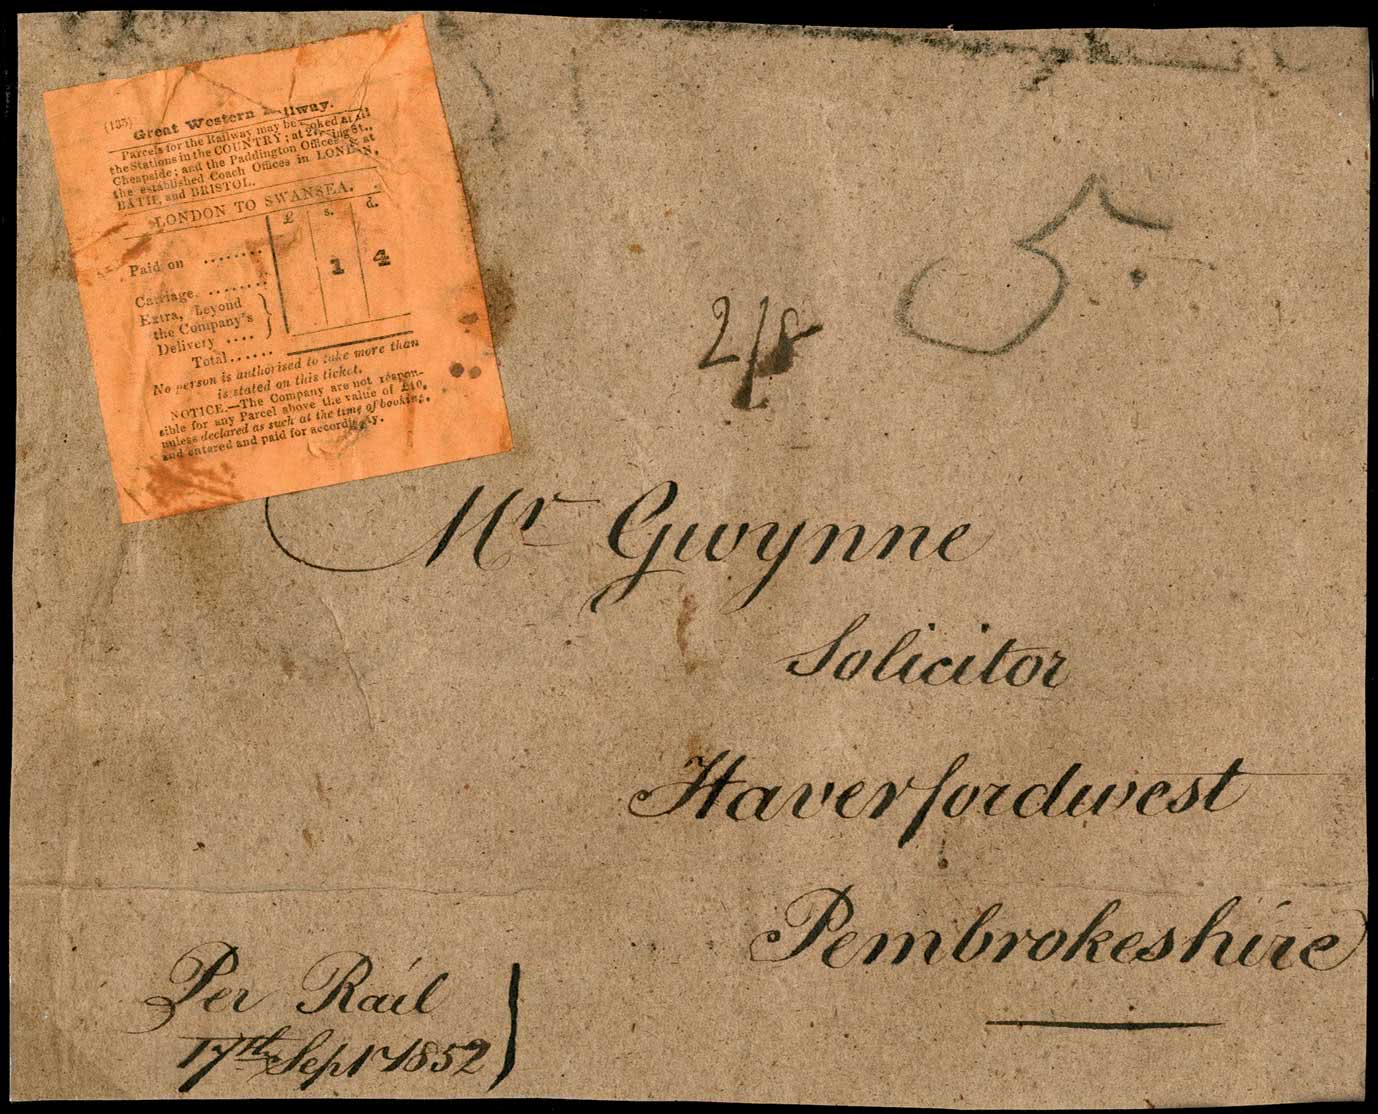 (133)
Great Western Railway.
Parcels for the Railway may be booked at all
the Stations in the COUNTRY; at
Cheapside; and the Paddington Offices & at
the established Coach Offices in LONDON,
BATH, and BRISTOL.
LONDON TO SWANSEA.
£ s. d.
Paid on ........ 1 4
Carriage ........
Extra, beyond
the Company's }
Delivery ....
Total......
No person is authorised to take more than
is stated on this ticket.
NOTICE.—The Company are not respon-
sible for any Parcel above the value of £10,
unless declared as such at the time of booking,
and entered and paid for accordingly.
5.
2/8
Mr Gwynne
Solicitor
Haverfordwest
Pembrokeshire
Per Rail
17th Sept 1852